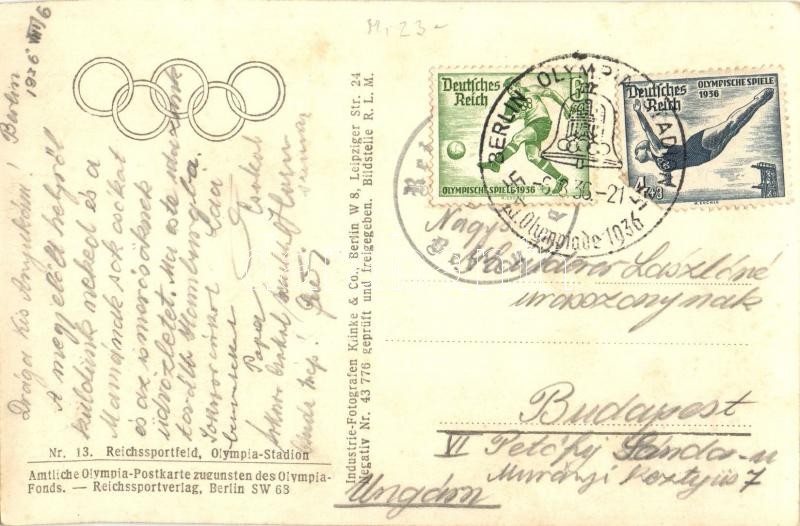 M, 23-
Berlin
1936 VIII/6
Drága Kis Anyukám!
A megjelölt helyről
küldünk neked és a
Mamának sok csókat
és az ismerősöknek
üdvözletet. Ma este utazunk
tovább Hamburgba.
Sokszor csókol
Papa
Nr. 13. Reichssportfeld, Olympia-Stadion
Amtliche Olympia-Postkarte zugunsten des Olympia-
Fonds. — Reichssportverlag, Berlin SW 68
Industrie-Fotografen Klinke & Co., Berlin W 8, Leipziger Str. 24
Negativ Nr. 43 776 geprüft und freigegeben. Bildstelle R. L. M.
Deutsches
Reich
6
OLYMPISCHE SPIELE 1936
Deutsches
Reich
OLYMPISCHE SPIELE
1936
BERLIN OLYMPIA-STADION
-6.8.36-21
XI. Olympiade 1936
Berlin
Nagys.
Lászlóné
urasszonynak
Budapest
VI Petőfy Sándor-u
Murányi 7
Ungarn